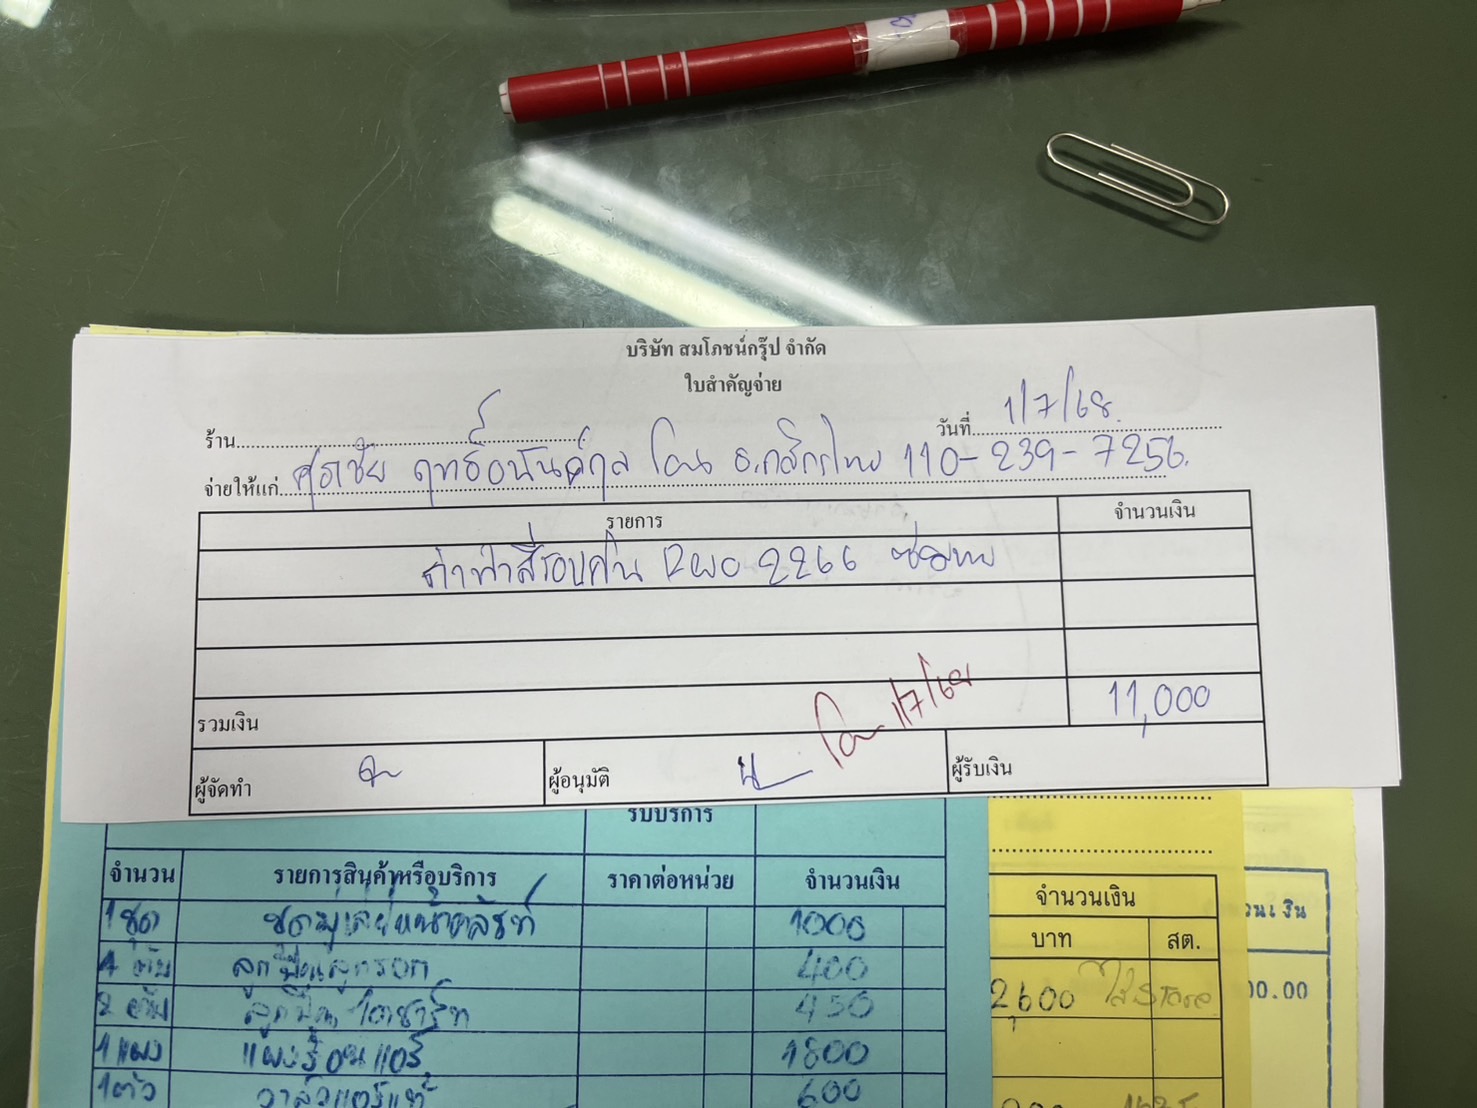 บริษัท สมโภชน์กรุ๊ป จำกัด
ใบสำคัญจ่าย
ร้าน
วันที่ 1/7/68
จ่ายให้แก่ ศุภชัย ฤทธิ์อนันต์กุล โอน ธ.กสิกรไทย 110-239-7256
รายการ
จำนวนเงิน
ค่าทำสีรอบคัน 2266
รวมเงิน
11,000
โอน 1/7/68
ผู้จัดทำ
ผู้อนุมัติ
ผู้รับเงิน
รับบริการ
จำนวน
รายการสินค้าหรือบริการ
ราคาต่อหน่วย
จำนวนเงิน
1 ชุด
1000
4 ตับ ลูกปืนลูกรอก 400
2 ตับ ลูกปืนไดชาร์ท 450
1 แผง แผงร้อนแอร์ 1800
1 ตัว วาล์วแอร์แท้ 600
จำนวนเงิน
บาท
สต.
2,600 ใส่ Store
วนเงิน
00.00